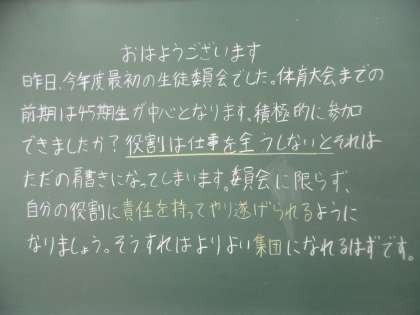 おはようございます
昨日、今年度最初の生徒委員会でした。体育大会までの
前期は45期生が中心となります。積極的に参加
できましたか？役割は仕事を全うしないとそれは
ただの肩書きになってしまいます。委員会に限らず、
自分の役割に責任を持ってやり遂げられるように
なりましょう。そうすればよりよい集団になれるはずです。